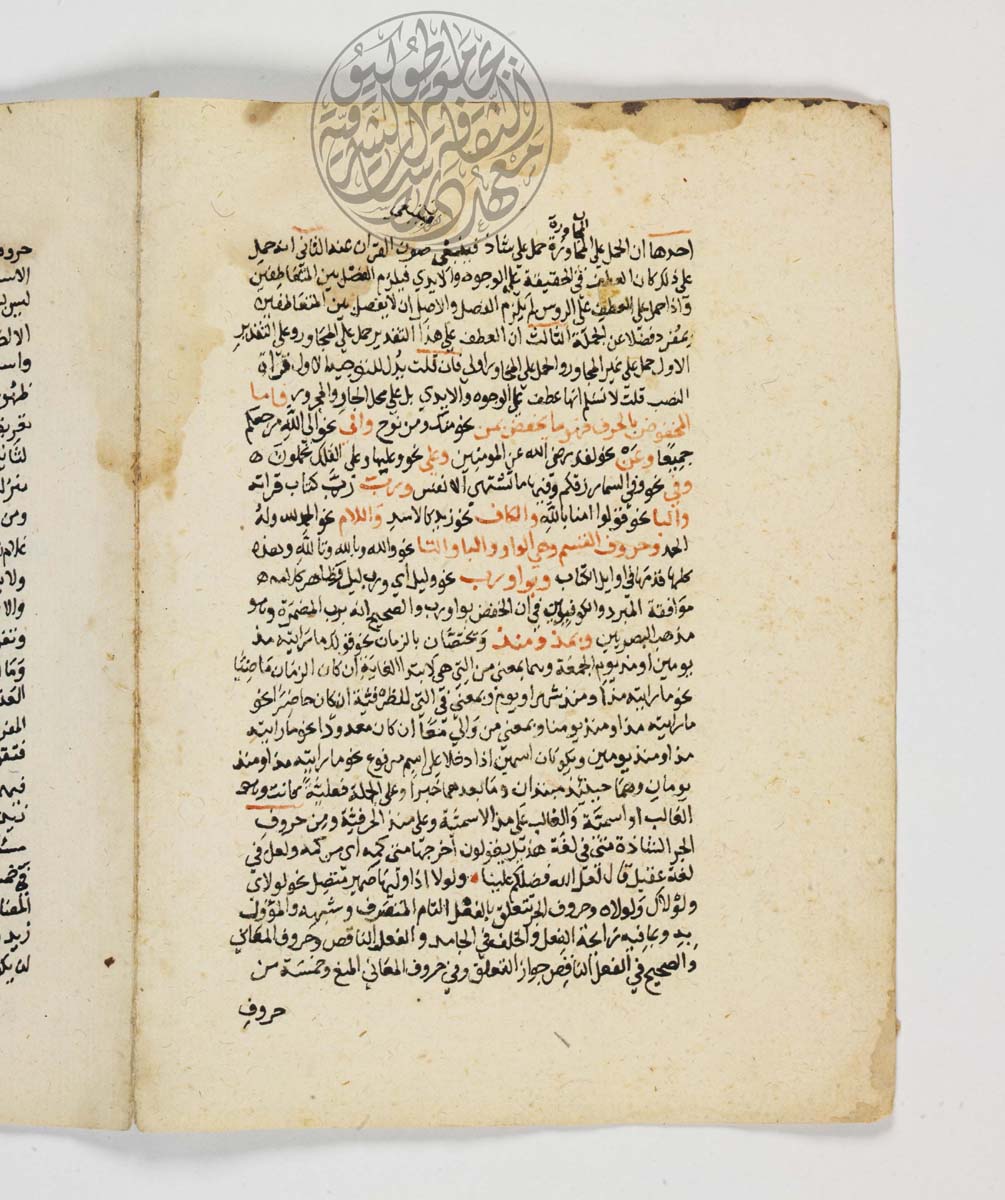 المجاورة
فينبغي
احدها ان الحمل على المجاورة حمل على شاذ فينبغي صون القران عنه الثاني انه حمل
على ذلك كان العطف في الحقيقة على الوجوه والايدي فيلزم الفصل بين المتعاطفين
واذا حمل على العطف على الروس لم يلزم الفصل والاصل ان لا يفصل بين المتعاطفين
بمفرد فضلا عن الجملة الثالث ان العطف على هذا التقدير حمل على المجاور وعلى التقدير
الاول حمل على غير المجاور والحمل على المجاور اولى فان قلت يدل للتوجيه الاول قراة
النصب قلت لا نسلم انها عطف على الوجوه والايدي بل على محل الجار والمجرور فاما
المخفوض بالحرف فهو ما يخفض بمن نحو منك ومن نوح والى نحو الى الله مرجعكم
جميعا وعن نحو لقد رضي الله عن المومنين وعلى نحو وعليها وعلى الفلك تحملون
وفي نحو وفي السما رزقكم وفيها ما تشتهي الانفس وبرب نحو رب كتاب قراته
والبا نحو قولوا امنا بالله والكاف نحو زيد كالاسد واللام نحو الحمد لله وله
الحمد وحروف القسم وهي الواو والبا والتا نحو والله وبالله وتالله وهذه
كلها قدمها في اوايل الكتاب وبواو رب نحو وليل اي ورب ليل وظاهر كلامه
موافقة المبرد والكوفيين في ان الخفض بواو رب والصحيح انه برب المضمرة وهو
مذهب البصريين وبمذ ومنذ ويختصان بالزمان نحو قولك ما رايته مذ
يومين او منذ يوم الجمعة وهما بمعنى من التي هي لابتدا الغاية ان كان الزمان ماضيا
نحو ما رايته مذ او منذ شهر او يوم وبمعنى في التي للظرفية ان كان حاضرا نحو
ما رايته مذ او منذ يومنا وبمعنى من والى معا ان كان معدودا نحو ما رايته
مذ او منذ يومين ويكونان اسمين اذا دخلا على اسم مرفوع نحو ما رايته مذ او منذ
يومان وهما حينئذ مبتدان وما بعدهما خبرا وعلى الجملة فعلية كانت وهو
الغالب او اسمية والغالب على مذ الاسمية وعلى منذ الحرفية ومن حروف
الجر الشاذة متى في لغة هذيل يقولون اخرجها متى كمه اي من كمه ولعل في
لغة عقيل قال لعل الله فضلكم علينا ولولا اذا وليها ضمير متصل نحو لولاي
ولولاك ولولاه وحروف الجر تتعلق بالفعل التام المتصرف وشبهه والمؤول
به وبما فيه رائحة الفعل والخلف في الجامد والفعل الناقص وحروف المعاني
والصحيح في الفعل الناقص جواز التعلق وفي حروف المعاني المنع وخمسة من
حروف